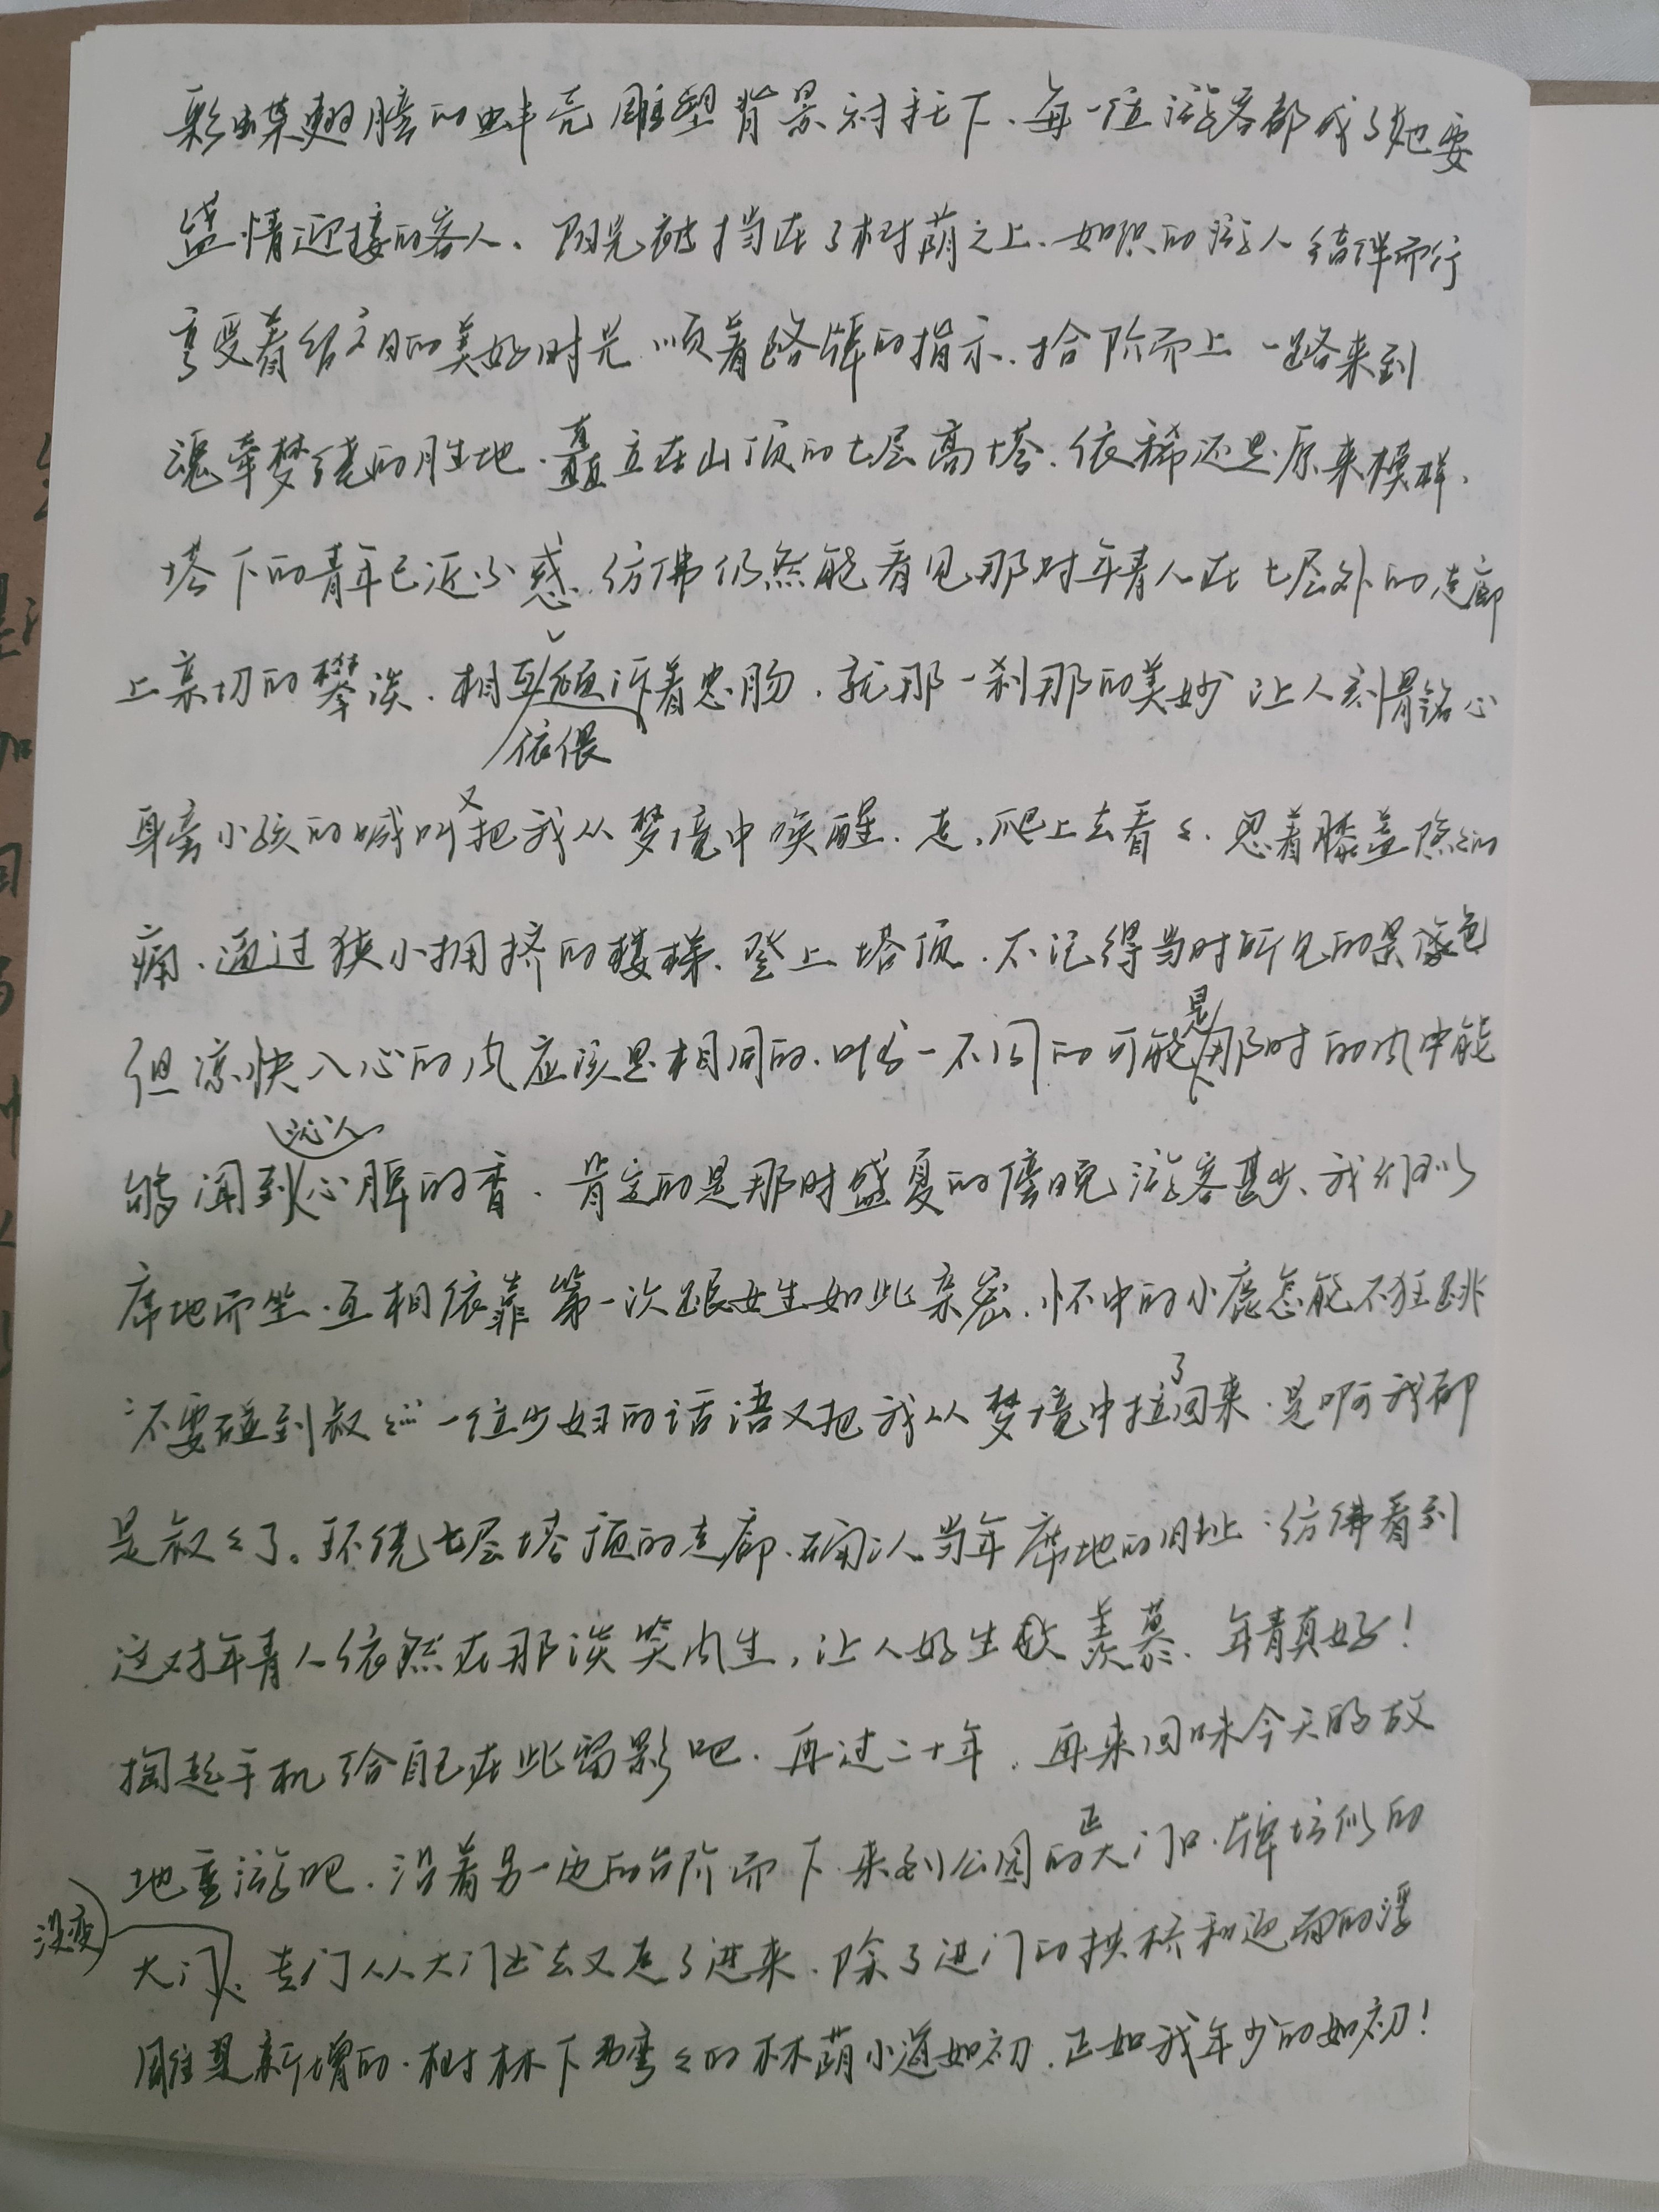 彩蝶翅膀的蚌壳雕塑背景衬托下、每一位游客都成了她要
盛情迎接的客人、阳光被挡在了树荫之上、如织的游人结伴而行
享受着假日的美好时光 顺着路牌的指示、拾阶而上 一路来到
魂牵梦绕的胜地、矗立在山顶的七层高塔、依稀还是原来模样、
塔下的青年已近不惑、仿佛仍然能看见那对年青人在七层外的走廊
上亲切的攀谈、相互倾诉着衷肠、就那一刹那的美妙 让人刻骨铭心
依偎
身旁小孩的喊叫又把我从梦境中唤醒、走、爬上去看々、忍着膝盖隐々的
痛、通过狭小拥挤的楼梯、登上塔顶、不记得当时所见的景色
但凉快入心的风应该是相同的、唯一不同的可能是那时的风中能
够闻到沁人心脾的香、肯定的是那时盛夏的傍晚 游客甚少、我们可以
席地而坐、互相依靠 第一次跟女生如此亲密、怀中的小鹿怎能不狂跳
“不要碰到叔々” 一位少妇的话语又把我从梦境中拉了回来、是啊我都
是叔々了。环绕七层塔顶的走廊、确认当年席地的旧址：仿佛看到
这对年青人依然在那谈笑风生，让人好生羡慕、年青真好！
掏起手机给自己在此留影吧、再过二十年、再来回味今天的故
地重游吧、沿着另一边的台阶而下、来到公园的正大门口、牌坊似的
大门没变、专门从大门出去又走了进来、除了进门的拱桥和迎面的浮
雕是新增的、树林下弯々的林荫小道如初、正如我年少的如初！